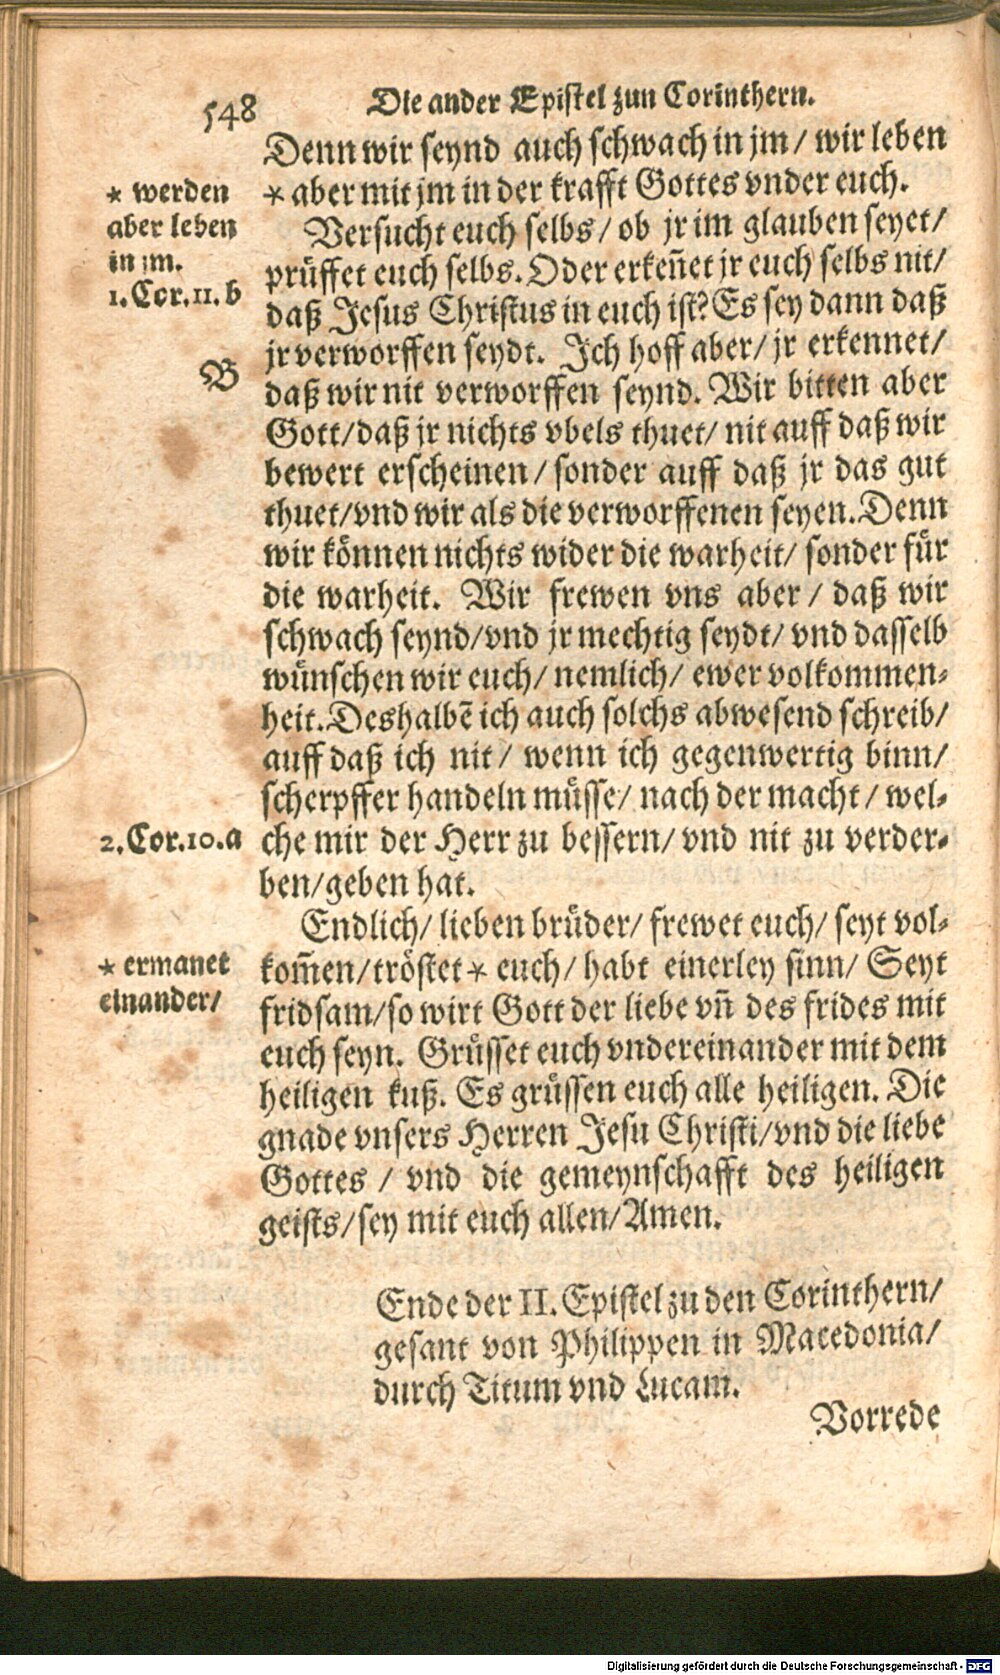 548
Die ander Epistel zun Corinthern.
Denn wir seynd auch schwach in jm/ wir leben
* werden
* aber mit jm in der krafft Gottes vnder euch.
aber leben
Versucht euch selbs/ ob jr im glauben seyet/
in jm.
prüffet euch selbs. Oder erkeñet jr euch selbs nit/
1.Cor.11.b
daß Jesus Christus in euch ist? Es sey dann daß
jr verworffen seydt. Ich hoff aber/ jr erkennet/
B
daß wir nit verworffen seynd. Wir bitten aber
Gott/daß jr nichts vbels thuet/ nit auff daß wir
bewert erscheinen/ sonder auff daß jr das gut
thuet/vnd wir als die verworffenen seyen. Denn
wir können nichts wider die warheit/ sonder für
die warheit. Wir frewen vns aber/ daß wir
schwach seynd/vnd jr mechtig seydt/ vnd dasselb
wünschen wir euch/ nemlich/ ewer volkommen-
heit. Deshalbẽ ich auch solchs abwesend schreib/
auff daß ich nit/ wenn ich gegenwertig binn/
scherpffer handeln müsse/ nach der macht/ wel-
2.Cor.10.a
che mir der Herr zu bessern/ vnd nit zu verder-
ben/geben hat.
Endlich/ lieben brüder/ frewet euch/ seyt vol-
* ermanet
kom̃en/tröstet * euch/ habt einerley sinn/ Seyt
einander/
fridsam/so wirt Gott der liebe vñ des frides mit
euch seyn. Grüsset euch vndereinander mit dem
heiligen kuß. Es grüssen euch alle heiligen. Die
gnade vnsers Herren Jesu Christi/vnd die liebe
Gottes / vnd die gemeynschafft des heiligen
geists/sey mit euch allen/Amen.
Ende der II. Epistel zu den Corinthern/
gesant von Philippen in Macedonia/
durch Titum vnd Lucam.
Vorrede
Digitalisierung gefördert durch die Deutsche Forschungsgemeinschaft - DFG